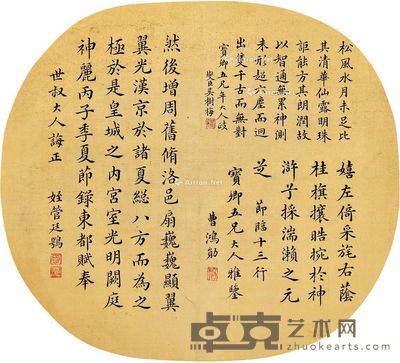 松風水月未足比
其清華仙露明珠
詎能方其朗潤故
以智通無累神測
未形超六塵而迥
出隻千古而無對
寶卿五兄年大人政
燮臣吳樹梅
嬉左倚采旄右蔭
桂旗攘皓捥於神
滸子採湍瀨之元
芝 節臨十三行
寶卿五兄大人雅鑒
曹鴻勛
然後增周舊脩洛邑扇巍巍顯翼
翼光漢京於諸夏總八方而為之
極於是皇城之內宮室光明闕庭
神麗丙子季夏節録東都賦奉
世叔大人誨正
姪管廷鶚
卓克艺术网
www.zhuokearts.com